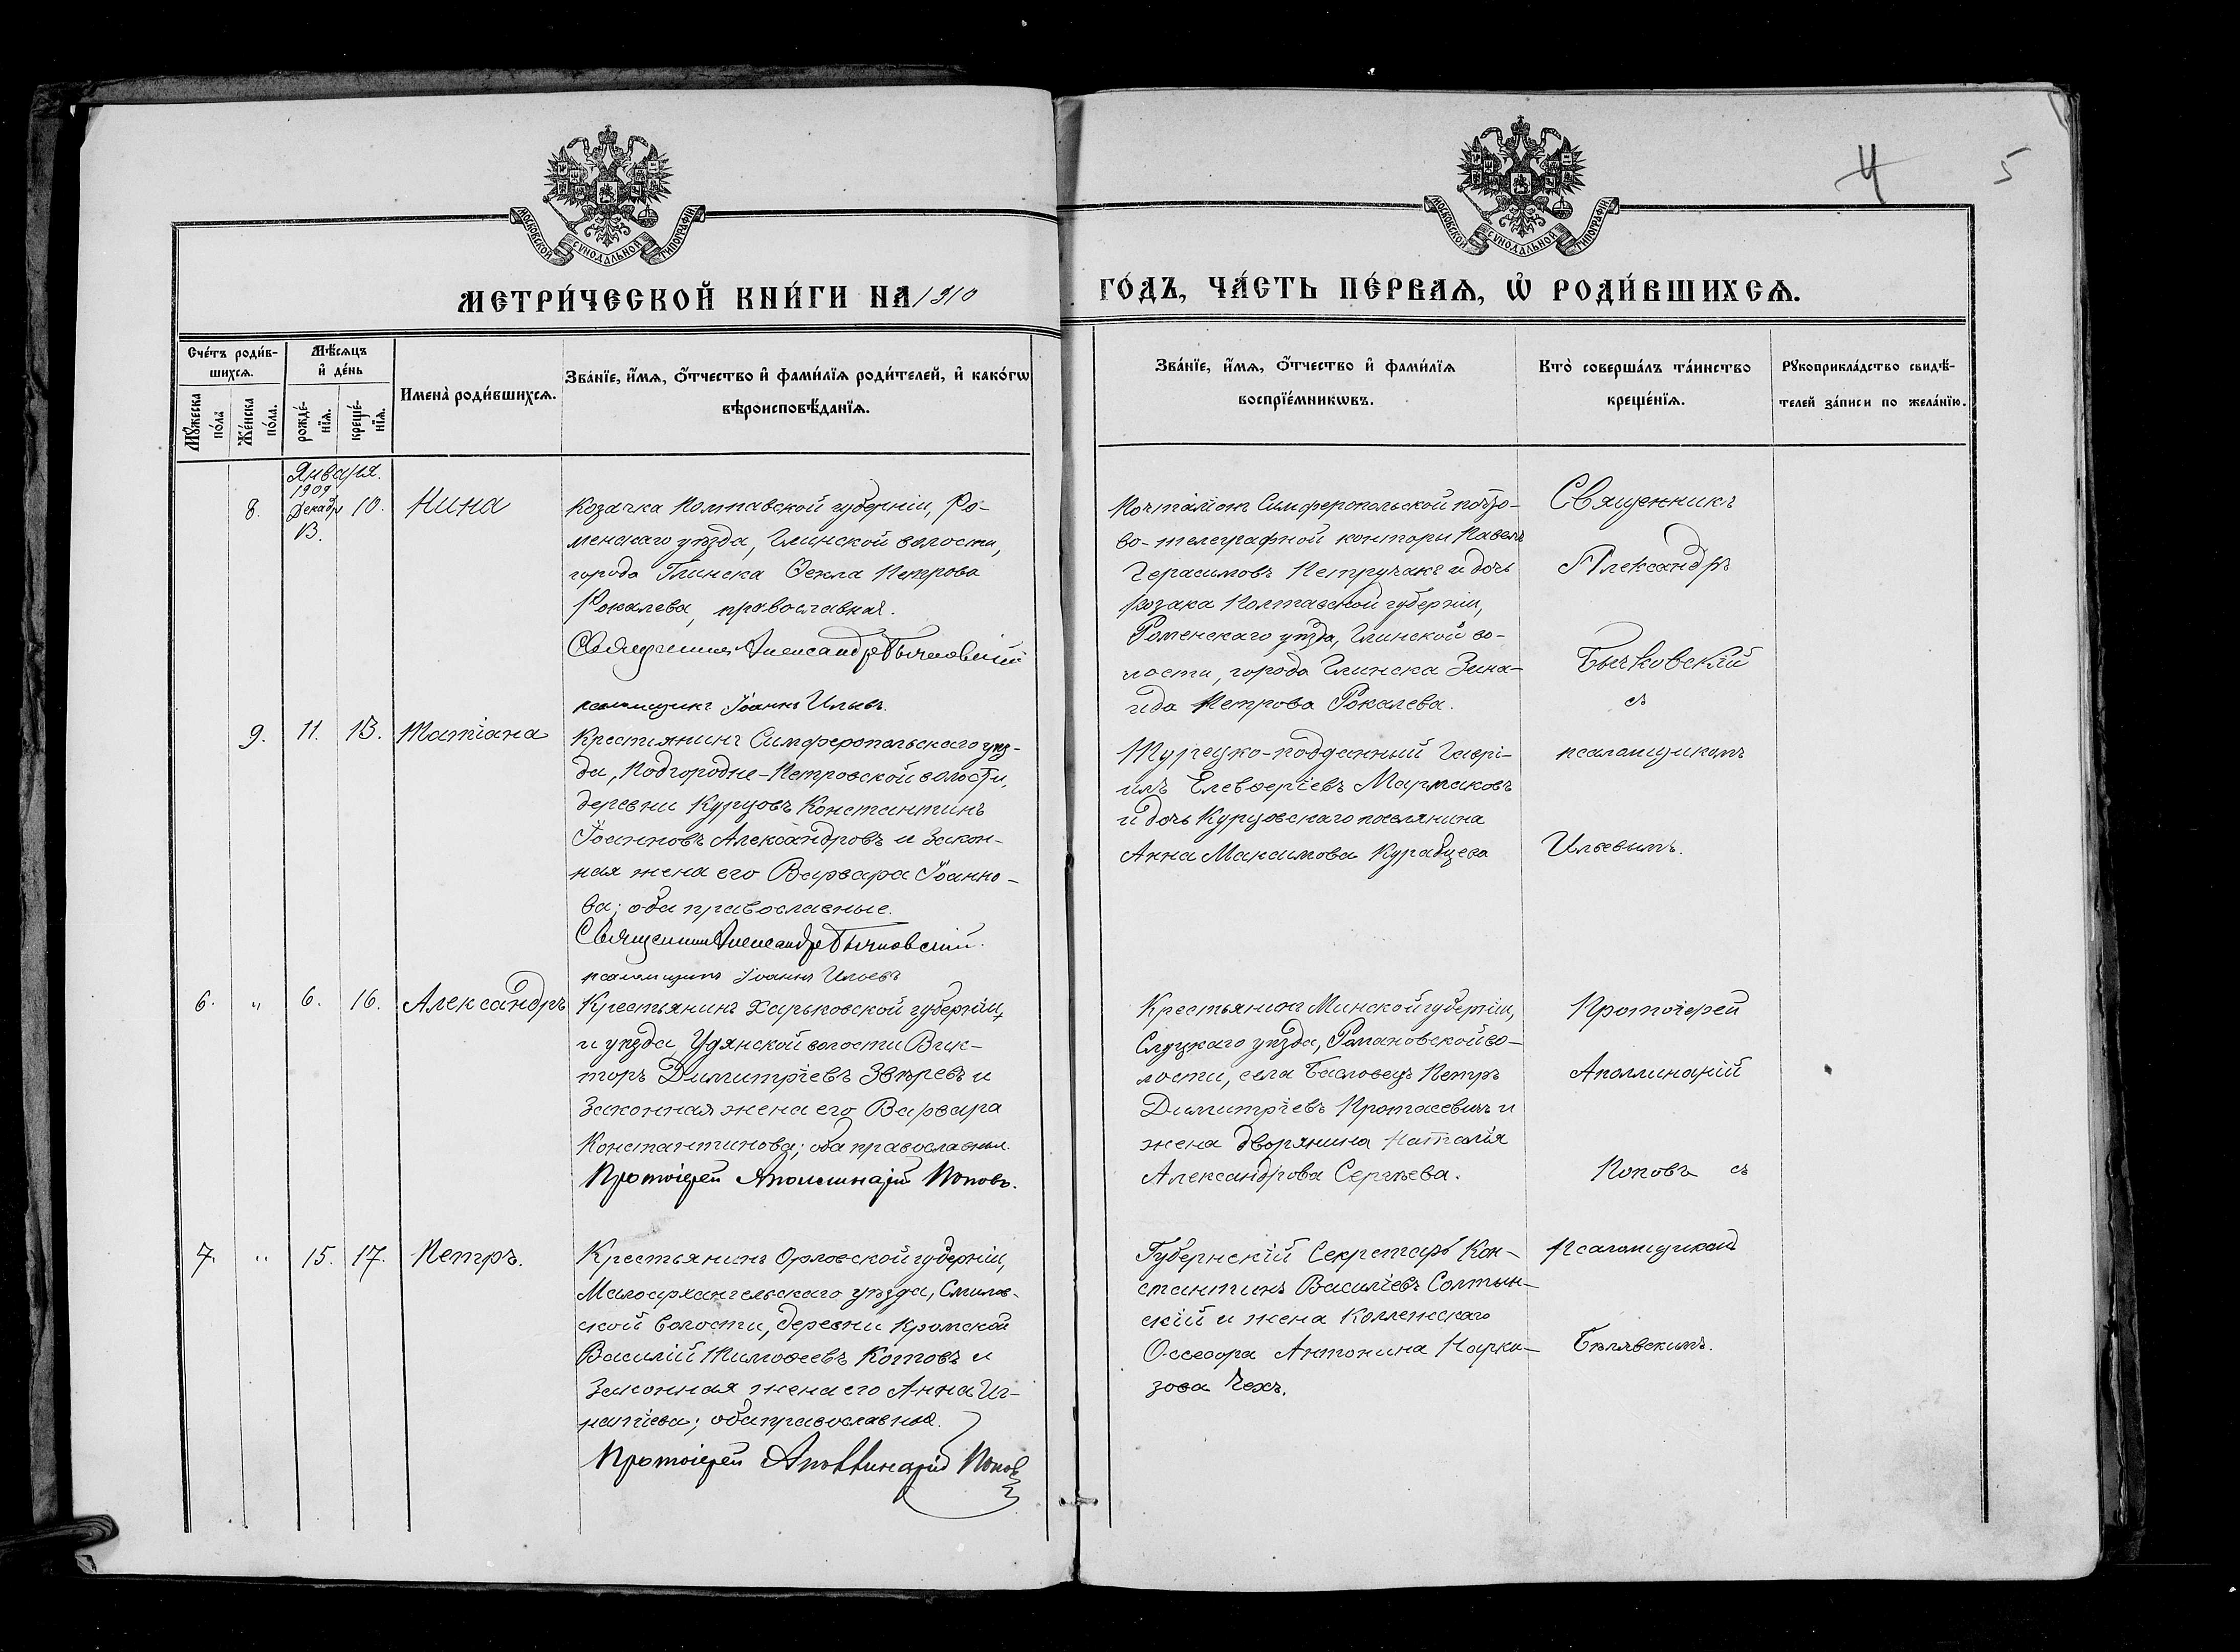 4 5
МОСКОВСКОЙ СѴНОДАЛЬНОЙ ТИПОГРАФІИ
МОСКОВСКОЙ СѴНОДАЛЬНОЙ ТИПОГРАФІИ
МЕТРИ́ЧЕСКОЙ КНИ́ГИ НА 1910
ГО́ДЪ, ЧА́СТЬ ПЕ́РВАѦ, Ѽ РОДИ́ВШИХСѦ.
Сче́тъ роди́в-
шихсѧ.
Мꙋ́жеска
по́ла
Же́нска
по́ла.
Мѣ́сѧцъ
и҆ де́нь
рожде́-
нїѧ.
креще́-
нїѧ.
Имена̀ роди́вшихсѧ.
Зва́нїе, и҆́мѧ, ѻ҆́тчество и҆ фами́лїѧ роди́телей, и҆ како́гѡ
вѣроисповѣ́данїѧ.
Зва́нїе, и҆́мѧ, ѻ҆́тчество и҆ фами́лїѧ
воспрїе́мникѡвъ.
Кто̀ соверша́лъ та́инство
креще́нїѧ.
Рꙋкоприкла́дство свидѣ́-
телей за́писи по жела́нїю.
Января.
1909
8. Декабр 10. Нина
13.
Козачка Полтавской губерніи, Ро-
менскаго уѣзда, Глинской волости,
города Глинска Ѳекла Петрова
Рокалева, православная.
Священникъ Александръ Бычковскій
псаломщикъ Іоаннъ Ильевъ.
Почталіонъ Симферопольской почто-
во-телеграфной конторы Павелъ
Герасимовъ Петручакъ и дочь
козака Полтавской губерніи,
Роменскаго уѣзда, Глинской во-
лости, города Глинска Зина-
ида Петрова Рокалева.
Священникъ
Александръ
Бычковскій
съ
9. 11. 13. Татіана
Крестьянинъ Симферопольскаго уѣз-
да, Подгородне-Петровской волости,
деревни Курцовъ Константинъ
Іоанновъ Александровъ и закон-
ная жена его Варвара Іоанно-
ва; оба православные.
Священникъ Александръ Бычковскій.
псаломщикъ Іоаннъ Ильевъ
Турецко-подданный Гаврі-
илъ Елевѳеріевъ Мармаковъ
и дочь Курцовскаго поселянина
Анна Максимова Курабцева
псаломщикомъ
Ильевымъ.
6. " 6. 16. Александръ
Крестьянинъ Харьковской губерніи,
и уѣзда, Удянской волости Вик-
торъ Димитріевъ Звѣревъ и
законная жена его Варвара
Константинова; оба православные.
Протоіерей Аполлинарій Поповъ.
Крестьянинъ Минской губерніи,
Слуцкаго уѣзда, Романовской во-
лости, села Басловецъ Петръ
Димитріевъ Протасевичъ и
жена дворянина Наталія
Александрова Сергѣева.
Протоіерей
Аполлинарій
Поповъ съ
7. " 15. 17. Петръ.
Крестьянинъ Орловской губерніи,
Малоархангельскаго уѣзда, Смилов-
ской волости, деревни Кромской
Василій Тимоѳеевъ Котовъ и
законная жена его Анна Иг-
натіева; оба православные.
Протоіерей Аполлинарій Поповъ
Губернскій Секретарь Кон-
стантинъ Василіевъ Солтын-
скій и жена Коллежскаго
Ассесора Антонина Нарки-
зова Чехъ.
псаломщикомъ
Бѣлявскимъ.